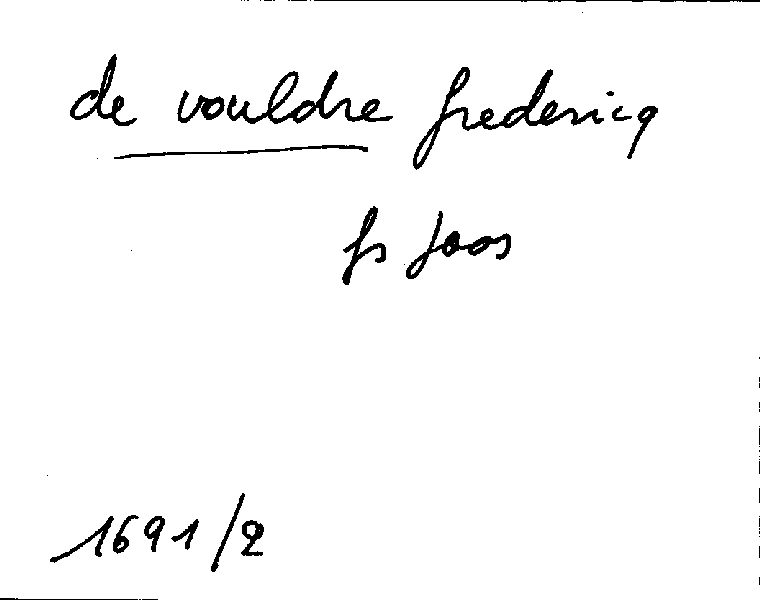 de vouldre frederica
fs Joos
1691/2